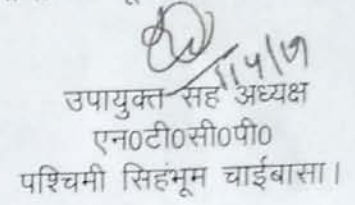 1/4/19
उपायुक्त सह अध्यक्ष
एन0टी0सी0पी0
पश्चिमी सिहंभूम चाईबासा।